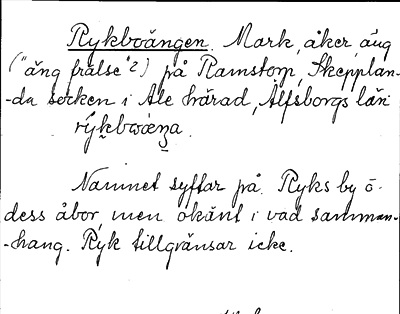 Rykboängen. Mark, åker, äng
("äng frälse" 2) på Ramstorp, Skepplan-
-da socken i Ale härad, Älfsborgs län
Namnet syftar på Ryks by o.
dess åbor, men okänt i vad samman-
-hang. Ryk tillgränsar icke.